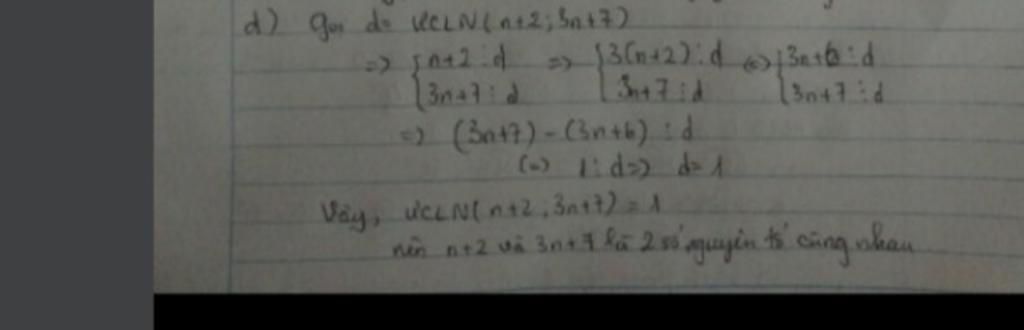 d) gọi d= ƯCLN(n+2;3n+7)
=> {n+2⋮d => {3(n+2)⋮d <=> {3n+6⋮d
{3n+7⋮d {3n+7⋮d {3n+7⋮d
=> (3n+7)-(3n+6)⋮d
(=) 1⋮d=> d=1
Vậy, ƯCLN(n+2,3n+7)=1
nên n+2 và 3n+7 là 2 số nguyên tố cùng nhau